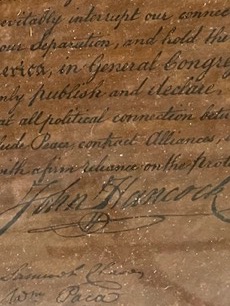 evitably interrupt our connec
our Separation, and hold the
merica, in General Congre
mnly publish and declare,
at all political connection betw
lude Peace, contract Alliances,
ith a firm reliance on the Prot
John Hancock
Samuel Chase
Wm Paca